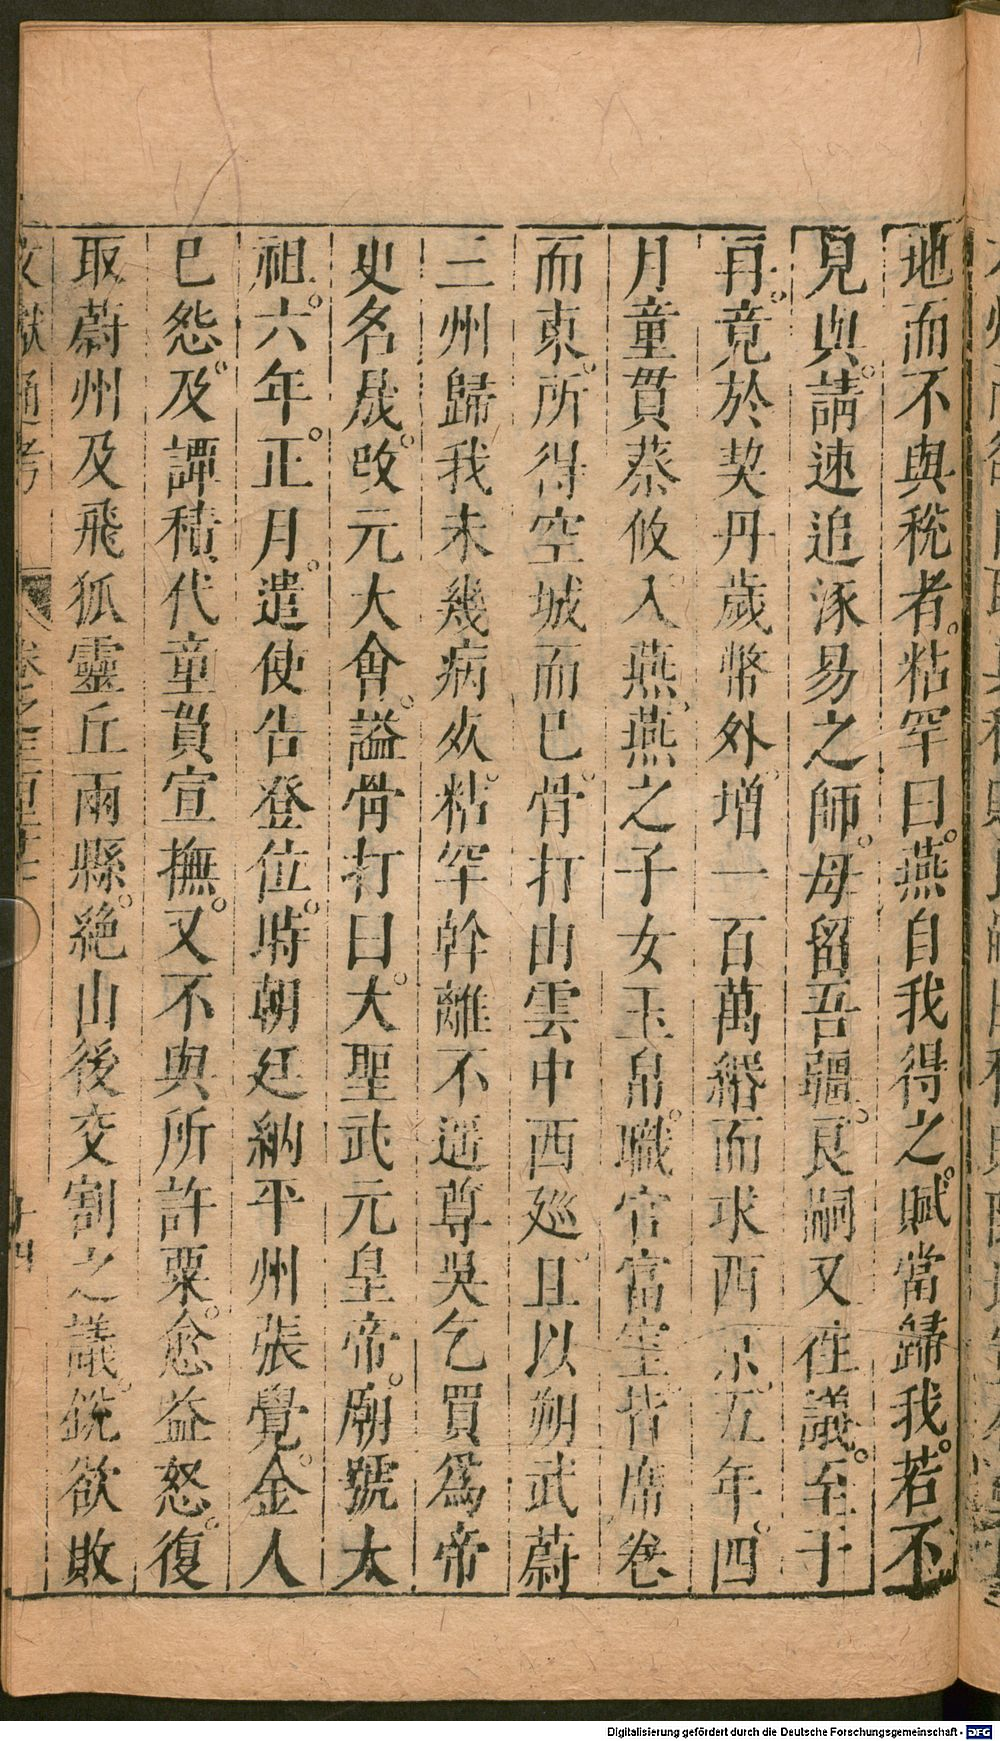 地而不與稅者。粘罕曰。燕自我得之。賦當歸我。若不
見與。請速追涿易之師。毋留吾疆。良嗣又往議。至于
再。竟於契丹歲幣外。增一百萬緡而求西京。五年。四
月童貫蔡攸入燕。燕之子女玉帛。職官富室皆席卷
而東。所得空城而巳。骨打由雲中西廵。且以朔武蔚
三州歸我未幾病㱙。粘罕幹離不遥尊吳乞買爲帝
更名晟。改元大會。謚骨打曰。大聖武元皇帝。廟號太
祖。六年。正月。遣使告登位。時朝廷納平州張覺。金人
巳怨。及譚稹代童貫宣撫。又不與所許粟。愈益怒。復
取蔚州及飛狐靈丘兩縣。絶山後交割之議。銳欲敗
文獻通考
十四
Digitalisierung gefördert durch die Deutsche Forschungsgemeinschaft - DFG